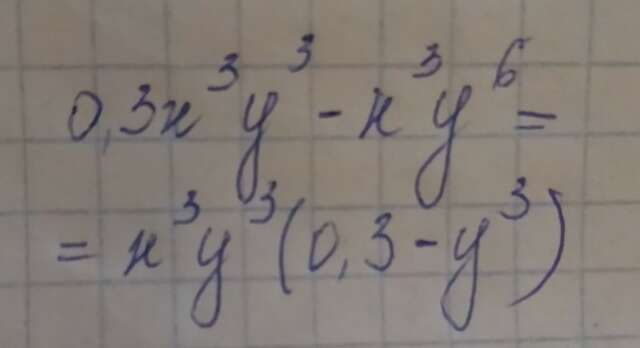 0,3x³y³ - x³y⁶ =
= x³y³(0,3 - y³)